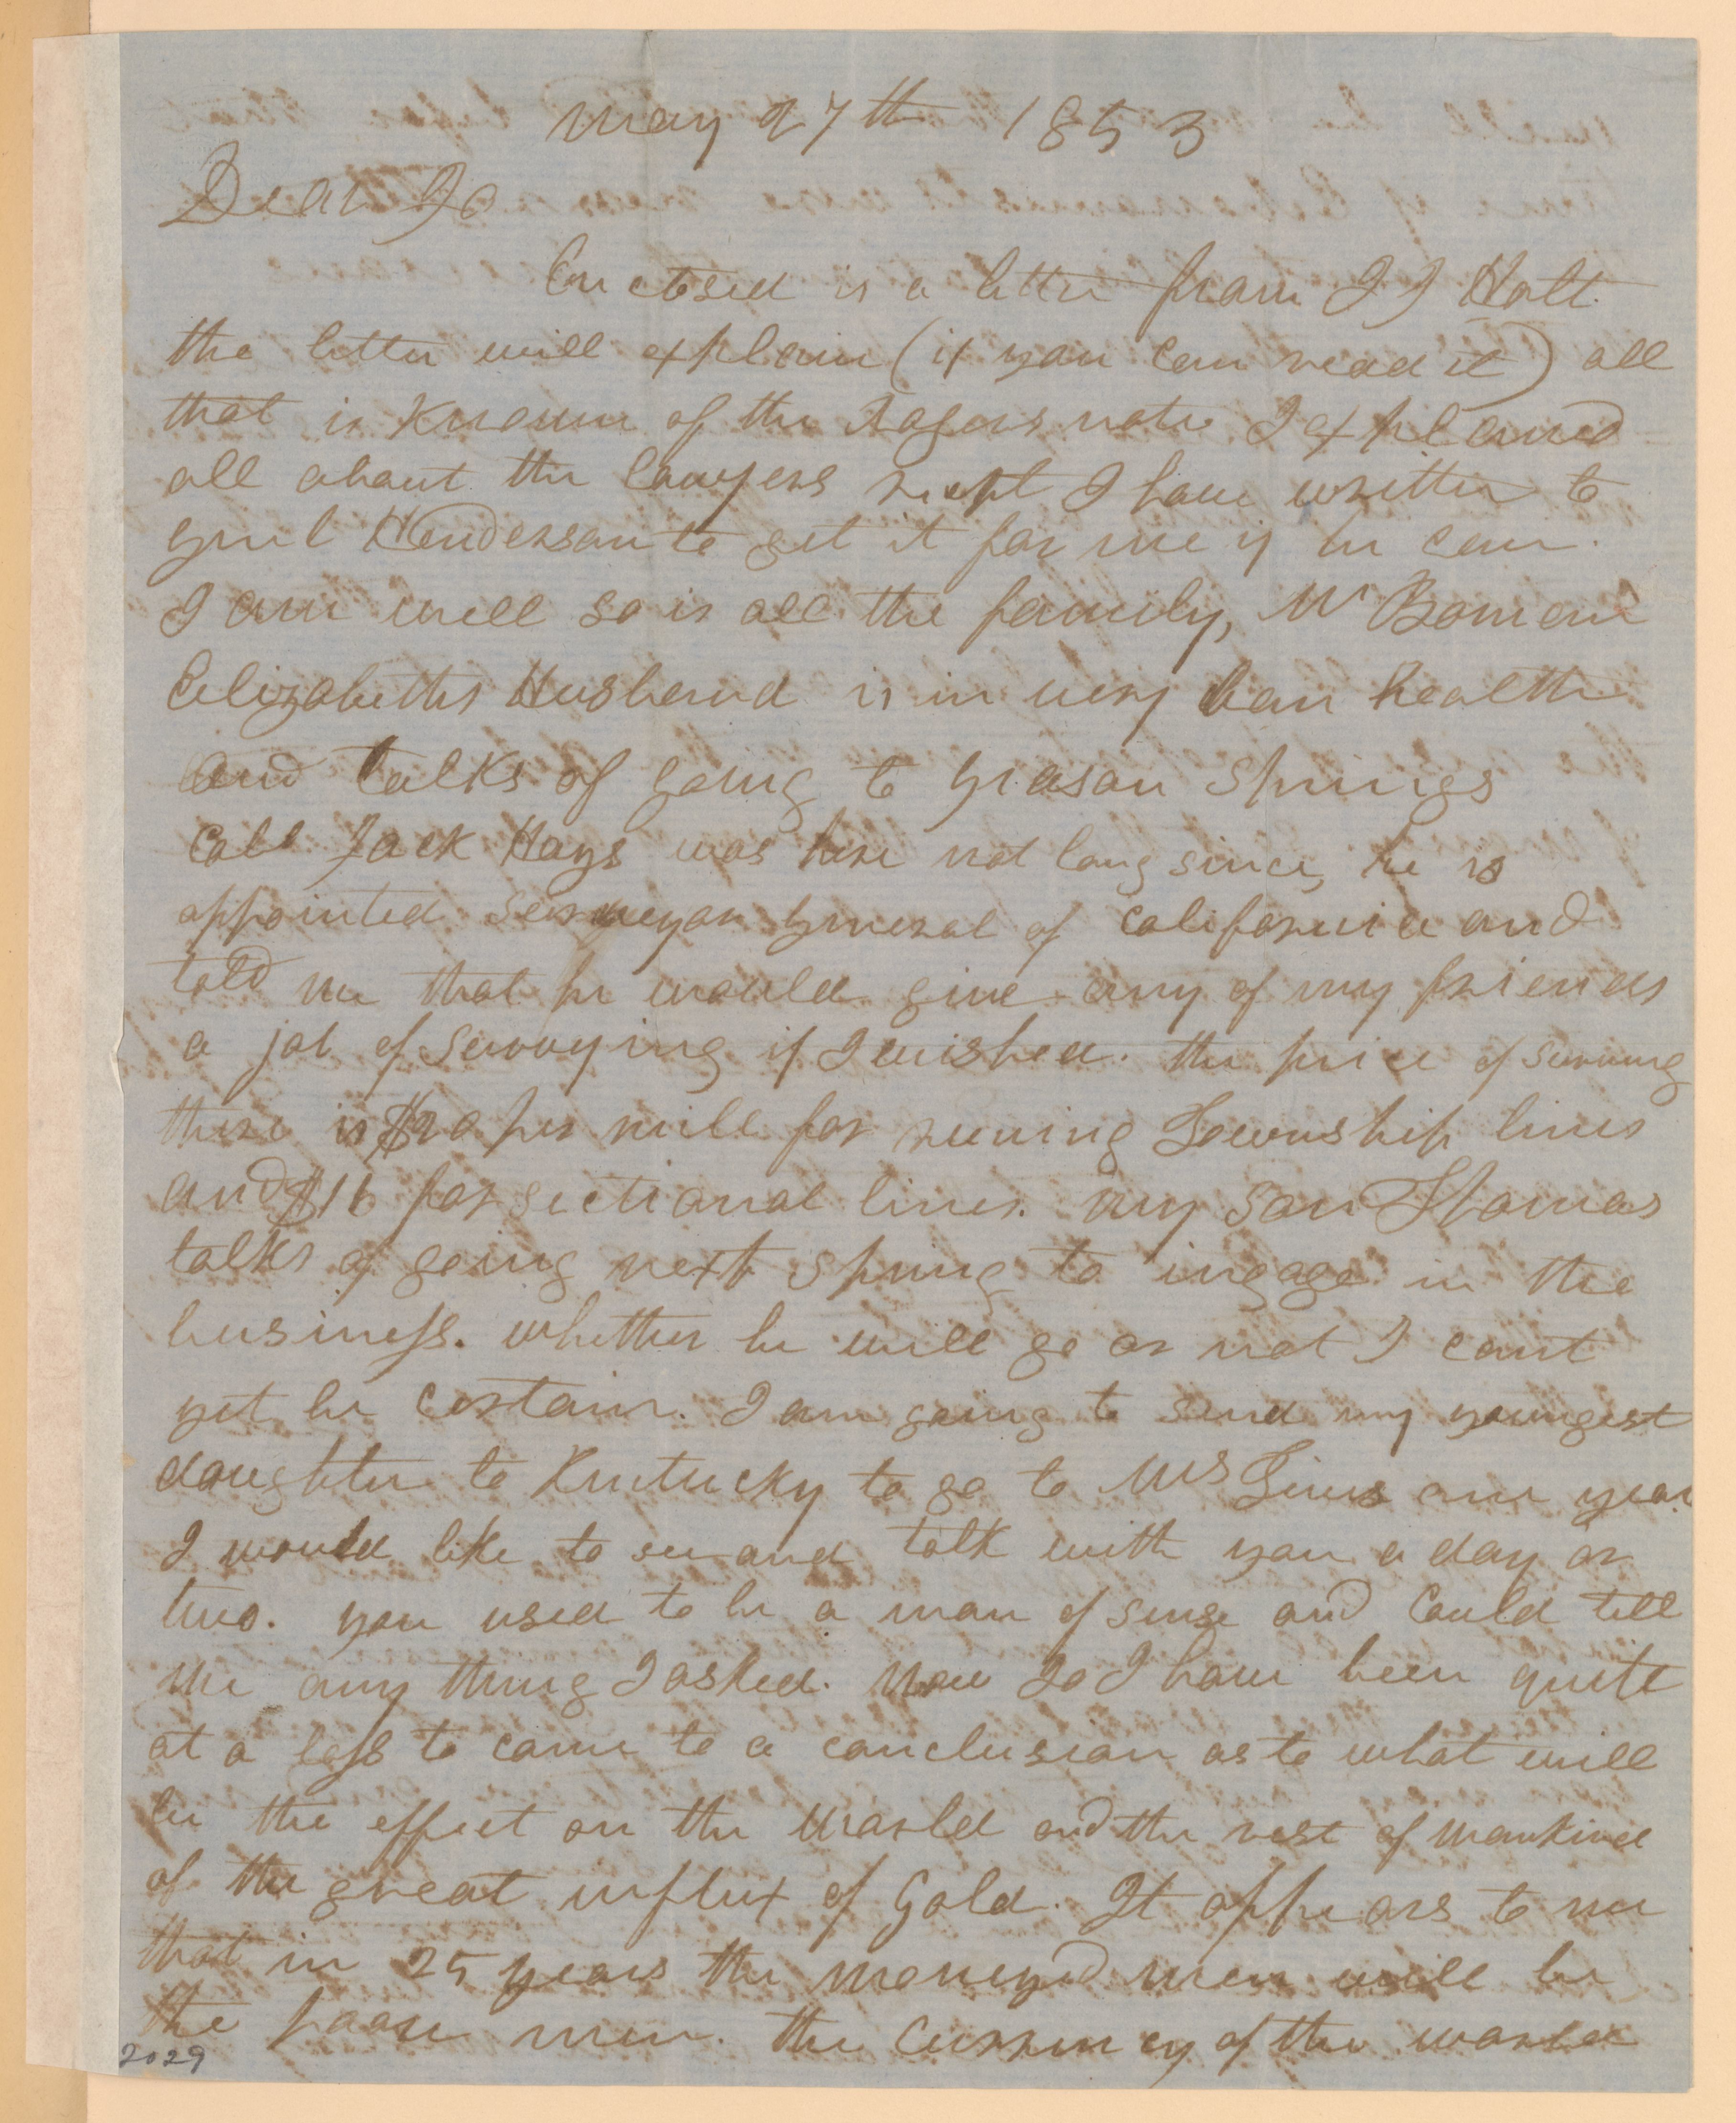 May 27th 1853
Dear Jo
Enclosed is a letter from J J Holt
the letter will explain (if you can read it) all
that is known of the Rogers note I explaned
all about the lawyers I have written to
Genl Henderson to get it for me if he can.
I am well so is all the family, Mr Bowen
Elizabeths Husband is in very bad health
and talks of going to Grason Springs
Coll Jack Hays was here not long since, he is
appointed Surveyor General of California and
told me that he would give any of my friends
a job of Surveying if I wished. the price of surving
there is $20 per mile for runing Township lines
and $16 for sectional lines. my son Thomas
talks of going next Spring to ingage in the
business. whether he will go or not I cant
yet be certain. I am going to send my youngest
daughter to Kentucky to go to Mrs Sims one year
I would like to see and talk with you a day or
two. you used to be a man of sense and Could tell
me any thing I asked. Now Jo I have been quite
at a loss to come to a conclusion as to what will
be the effect on the world and the rest of mankind
of the great influx of Gold. It appears to me
that in 25 years the moneyd men will be
the poore men. the Currency of the world
2029